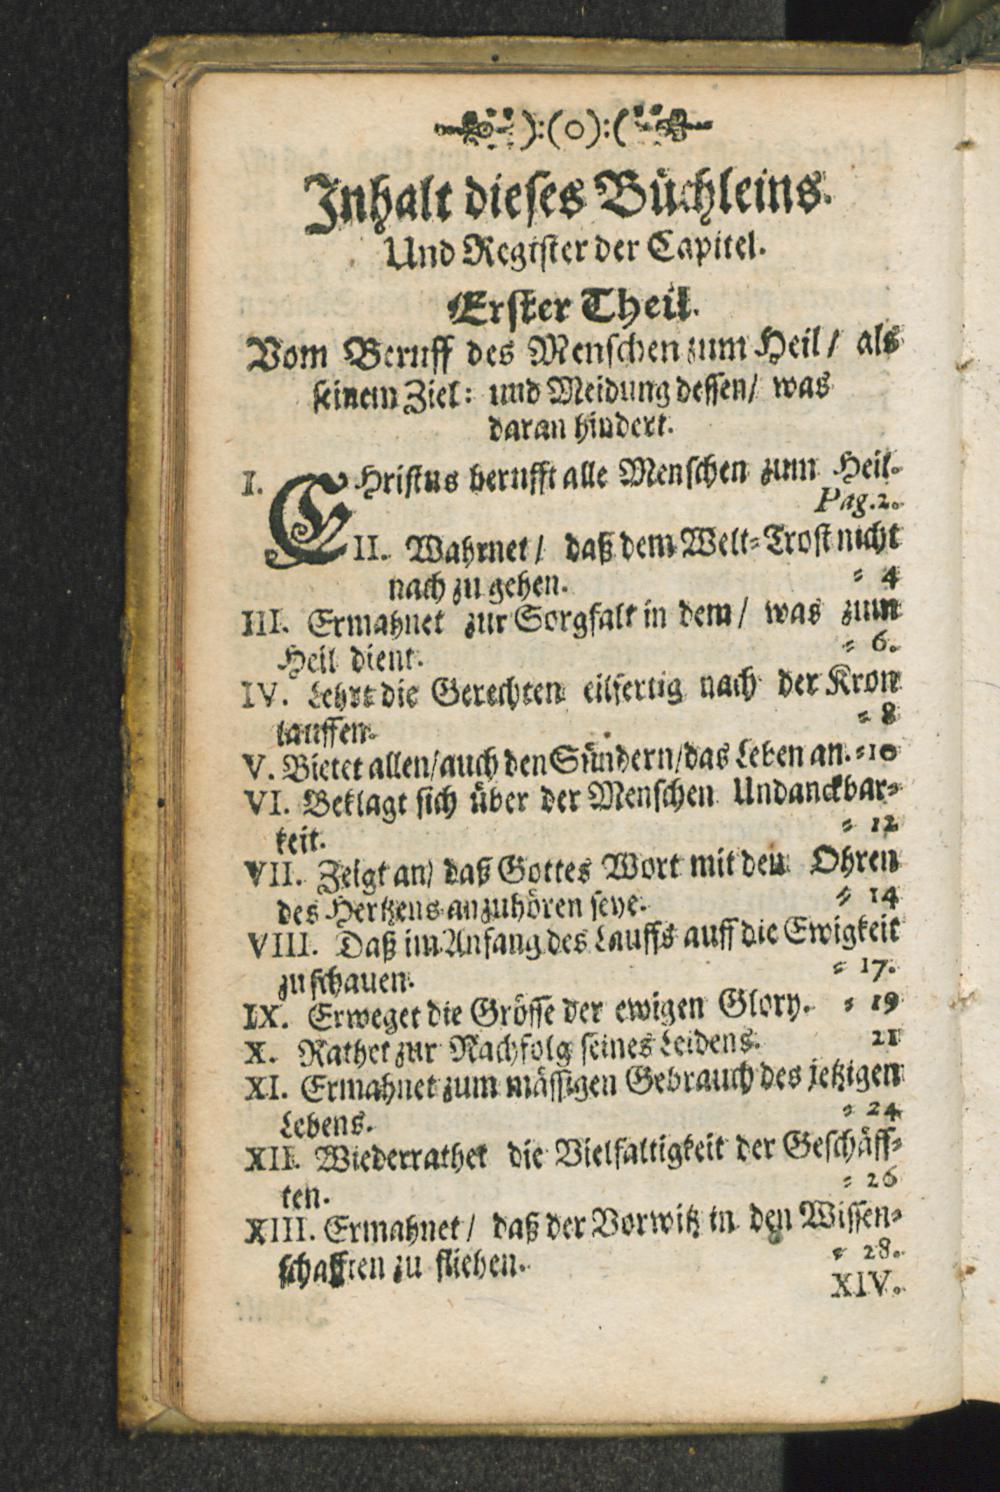 ):(o):(
Inhalt dieses Büchleins.
Und Register der Capitel.
Erster Theil.
Vom Beruff des Menschen zum Heil / als
seinem Ziel: und Meidung dessen / was
daran hindert.
I. CHristus berufft alle Menschen zum Heil.
Pag. 2.
II. Wahrnet / daß dem Welt-Trost nicht
nach zu gehen. = 4
III. Ermahnet zur Sorgfalt in dem / was zum
Heil dient. = 6.
IV. Lehrt die Gerechten eilfertig nach der Kron
lauffen. = 8
V. Bietet allen / auch den Sündern / das Leben an. = 10
VI. Beklagt sich über der Menschen Undanckbar-
keit. = 12
VII. Zeigt an / daß Gottes Wort mit den Ohren
des Hertzens anzuhören seye. = 14
VIII. Daß im Anfang des Lauffs auff die Ewigkeit
zu schauen. = 17.
IX. Erweget die Grösse der ewigen Glory. = 19
X. Rathet zur Nachfolg seines Leidens. 21
XI. Ermahnet zum mässigen Gebrauch des jetzigen
Lebens. = 24
XII. Wiederrathet die Vielfaltigkeit der Geschäff-
ten. = 26
XIII. Ermahnet / daß der Vorwitz in den Wissen-
schafften zu fliehen. = 28.
XIV.